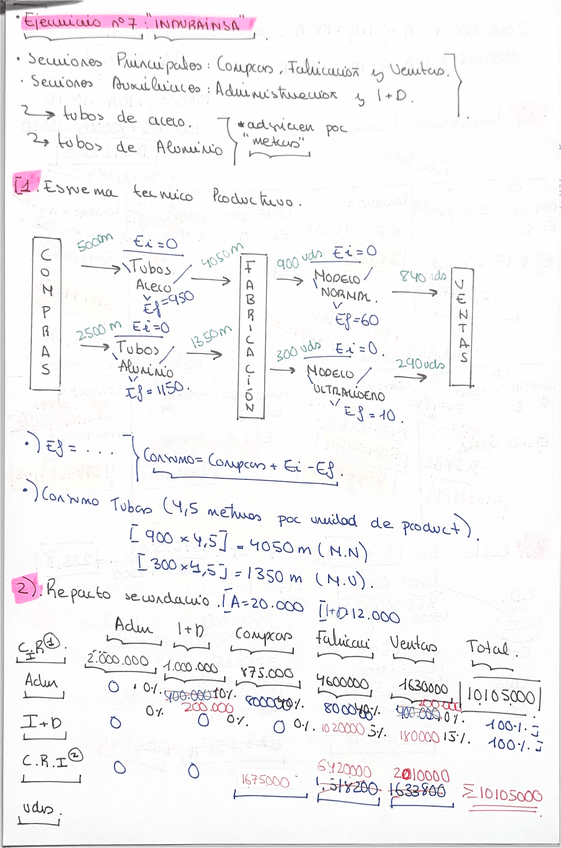 • Ejercicio nº7: "INDURAINSA".
• Secciones Principales: Compras, Fabricación y Ventas.
• Secciones Auxiliares: Administración y I+D.
2 → tubos de acero.
2 → tubos de Aluminio
* adquieren por "metros"
1. Esquema tecnico Productivo.
COMPRAS
500m
Ei=0
Tubos Acero
Ef=950
4050m
2500m
Ei=0
Tubos Aluminio
Ef=1150.
1350m
FABRICACIÓN
900 uds
Ei=0
MODELO NORMAL.
Ef=60
840 uds
300 uds
Ei=0.
MODELO ULTRALIGERO
Ef=10.
290 uds
VENTAS
•) Ef = .... Consumo = Compras + Ei - Ef.
•) Consumo Tubos (4,5 metros por unidad de product).
[900 x 4,5] = 4050 m (M.N)
[300 x 4,5] = 1350 m (M.U).
2). Reparto secundario. [A=20.000 [I+D 12.000
Adm I+D Compras Fabricaci Ventas Total.
C.R.I ① 2.000.000 1.000.000 875.000 4600000 1630000 10105000
Adm 0 0% 200.000 10% 800000 40% 800000 40% 200.000 10% 100%
I+D 0 0% 0 0% 0 0% 1020000 180000 15% 100%
C.R.I ② 0 0 1675000 6420000 2010000 Σ10105000
518200 1633800
uds.